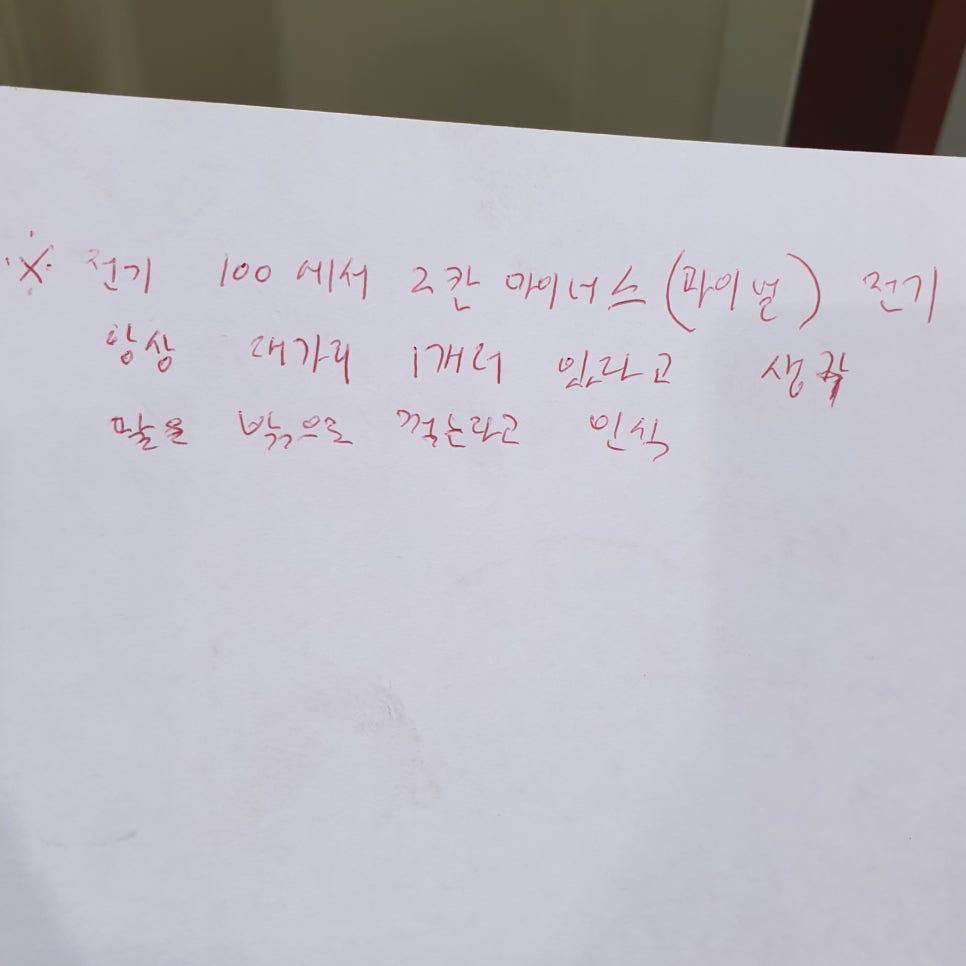 ※ 전기 100에서 2칸 마이너스 (파이널) 전기
항상 대가리 1개더 있다고 생각
말을 밖으로 꺾는다고 인식